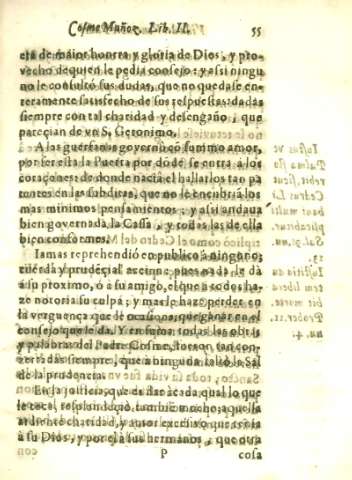 Cosme Muñoz. Lib. II. 55
era de maior honrra y gloria de Dios, y pro-
vecho de quien le pedia consejo: y assi ningu
no le consultó sus dudas, que no quedase en-
teramente satisfecho de sus respuestas: dadas
siempre con tal charidad y desengaño, que
pareçian de vn S. Geronimo.
A las guerfanas governó cõ summo amor,
por ser esta la Puerta por dõde se entra á los
coraçones: de donde nacia el hallarlos tan pa
tentes en las subditas, que no le encubriá los
mas minimos pensamientos; y assi andava
bien governada la Cassa, y todas las de ella
bien conformes.
Iamas reprehendió en publico à ninguno;
cuerda y prudẽcial accion: pues nada le dà
à su proximo, ó a su amigo, el que à todos ha-
ze notoria su culpa; y mas le haze perder en
la verguença que dé ocasion, que ganar en el
consejo que le da. Y en suma todas las obras
y palabras del Padre Cosme, fueron tan con-
certadas siempre, que à ninguna faltó la Sal
de la prudencia.
En la justicia, que es dar à cada qual lo que
le toca, resplandeció tambiẽ mucho; aquella
ardiente charidad, y amor excesivo que tenia
à su Dios, y por el à sus hermanos, que otra
P cosa